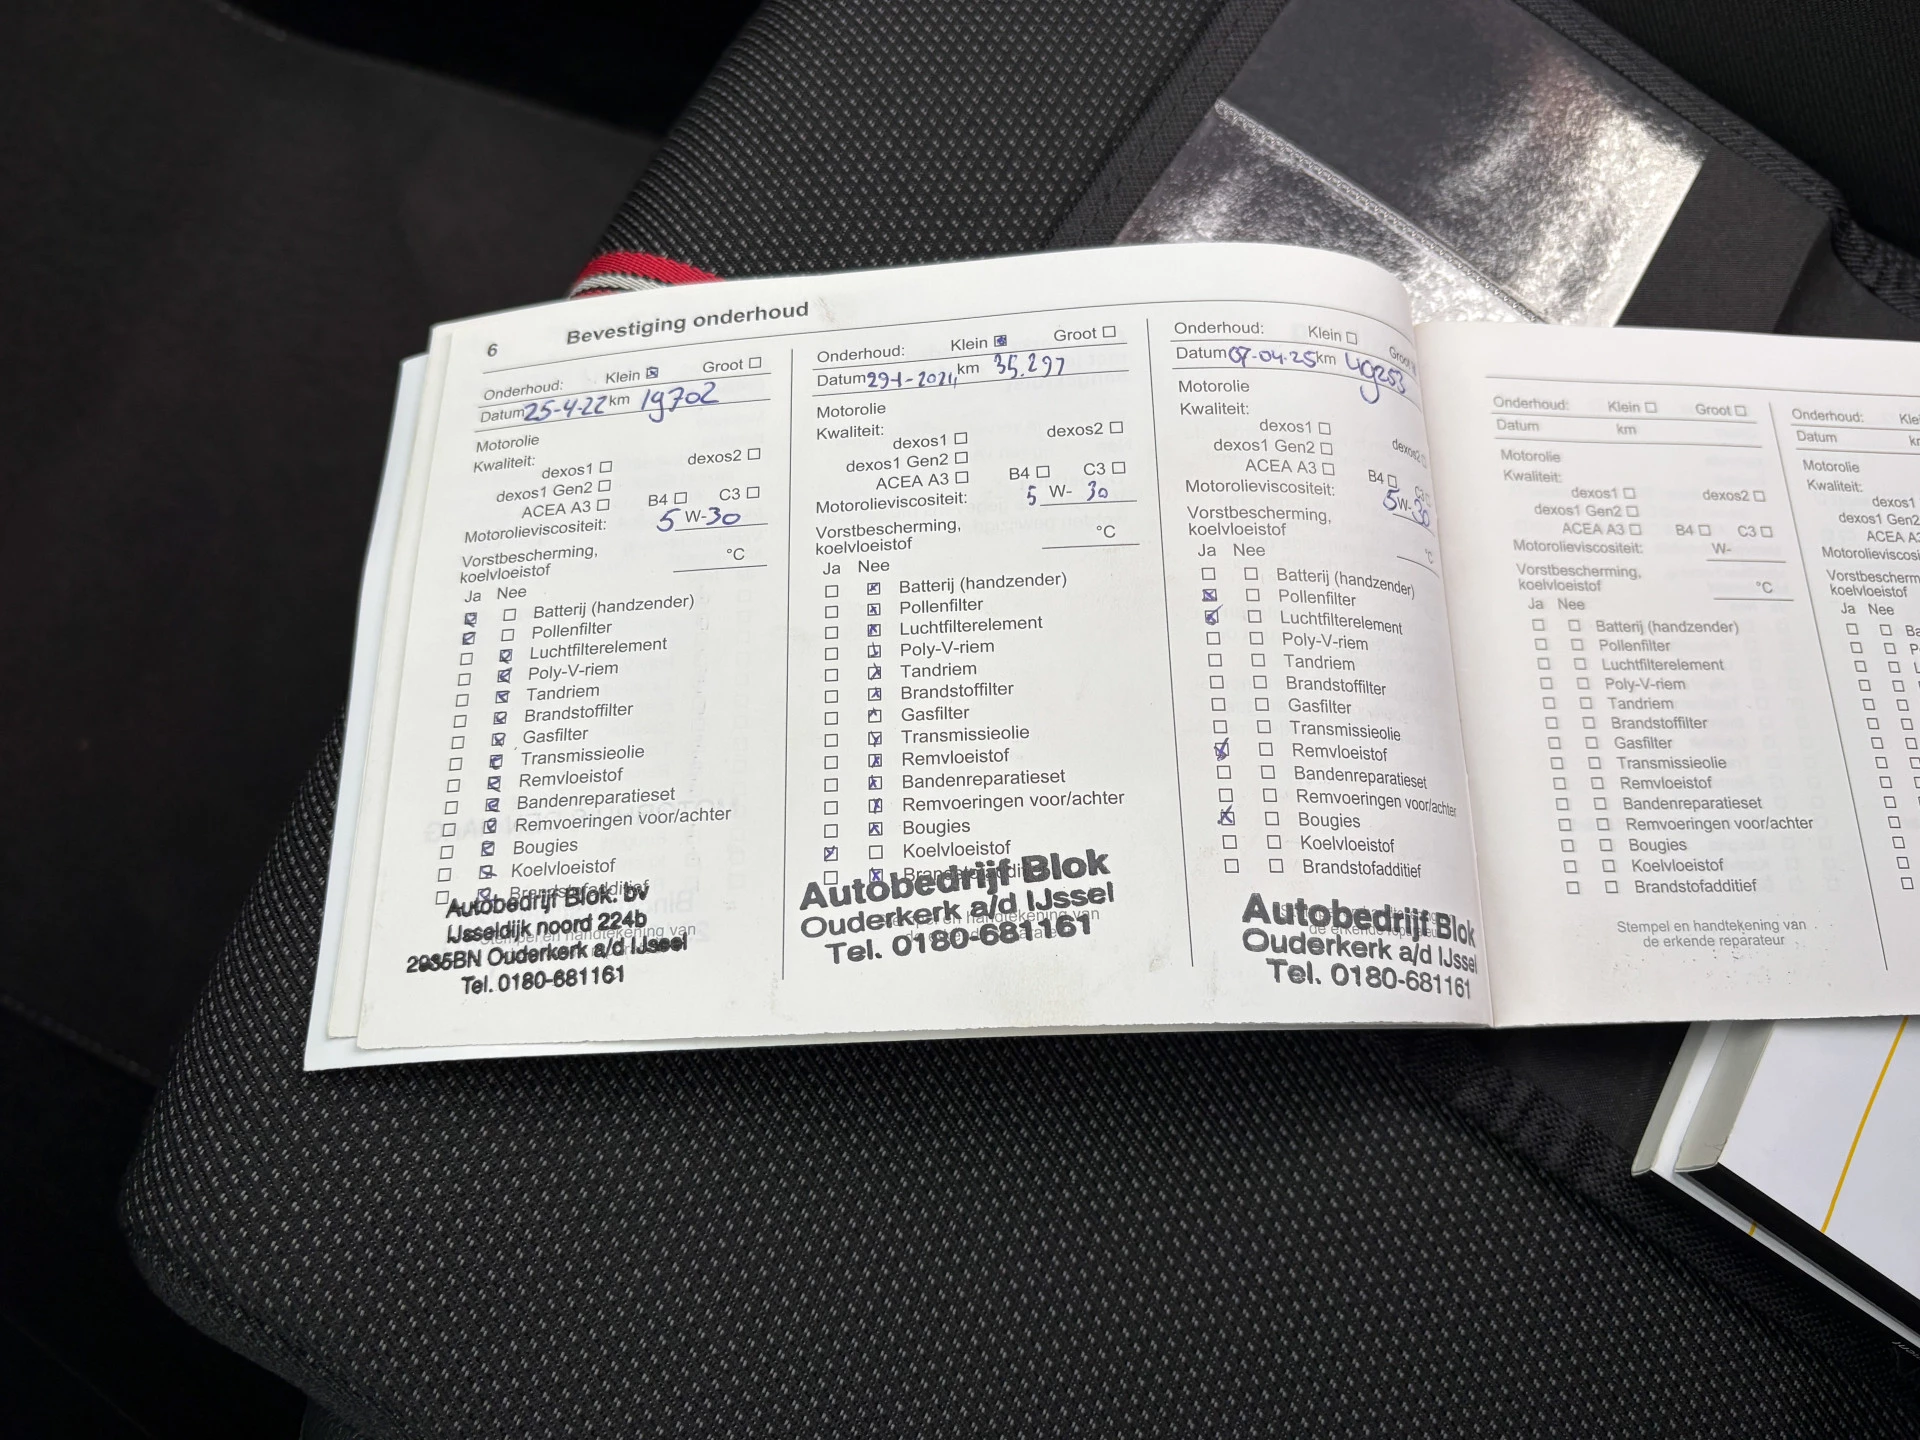 6 Bevestiging onderhoud
Onderhoud: Klein ☒ Groot ☐
Datum 25-4-22 km 19702
Motorolie
Kwaliteit:
dexos1 ☐ dexos2 ☐
dexos1 Gen2 ☐
ACEA A3 ☐ B4 ☐ C3 ☐
Motorolieviscositeit: 5 W-30
Vorstbescherming,
koelvloeistof °C
Ja Nee
Batterij (handzender)
Pollenfilter
Luchtfilterelement
Poly-V-riem
Tandriem
Brandstoffilter
Gasfilter
Transmissieolie
Remvloeistof
Bandenreparatieset
Remvoeringen voor/achter
Bougies
Koelvloeistof
Brandstofadditief
Stempel en handtekening van
Autobedrijf Blok. bv
IJsseldijk noord 224b
2935BN Ouderkerk a/d IJssel
Tel. 0180-681161
Onderhoud: Klein ☒ Groot ☐
Datum 29-1-2024 km 35.297
Motorolie
Kwaliteit:
dexos1 ☐ dexos2 ☐
dexos1 Gen2 ☐
ACEA A3 ☐ B4 ☐ C3 ☐
Motorolieviscositeit: 5 W- 30
Vorstbescherming,
koelvloeistof °C
Ja Nee
Batterij (handzender)
Pollenfilter
Luchtfilterelement
Poly-V-riem
Tandriem
Brandstoffilter
Gasfilter
Transmissieolie
Remvloeistof
Bandenreparatieset
Remvoeringen voor/achter
Bougies
Koelvloeistof
Autobedrijf Blok
Ouderkerk a/d IJssel
Tel. 0180-681161
Onderhoud: Klein ☐ Groot
Datum 07-04-25 km 49253
Motorolie
Kwaliteit:
dexos1 ☐ dexos2
dexos1 Gen2 ☐
ACEA A3 ☐ B4 ☐ C3
Motorolieviscositeit: 5 W-30
Vorstbescherming,
koelvloeistof °C
Ja Nee
Batterij (handzender)
Pollenfilter
Luchtfilterelement
Poly-V-riem
Tandriem
Brandstoffilter
Gasfilter
Transmissieolie
Remvloeistof
Bandenreparatieset
Remvoeringen voor/achter
Bougies
Koelvloeistof
Brandstofadditief
Autobedrijf Blok
Ouderkerk a/d IJssel
Tel. 0180-681161
Onderhoud: Klein ☐ Groot ☐
Datum km
Motorolie
Kwaliteit:
dexos1 ☐ dexos2 ☐
dexos1 Gen2 ☐
ACEA A3 ☐ B4 ☐ C3 ☐
Motorolieviscositeit: W-
Vorstbescherming,
koelvloeistof °C
Ja Nee
Batterij (handzender)
Pollenfilter
Luchtfilterelement
Poly-V-riem
Tandriem
Brandstoffilter
Gasfilter
Transmissieolie
Remvloeistof
Bandenreparatieset
Remvoeringen voor/achter
Bougies
Koelvloeistof
Brandstofadditief
Stempel en handtekening van
de erkende reparateur
Onderhoud: Kle
Datum
Motorolie
Kwaliteit:
dexos1
dexos1 Gen2
ACEA A
Motorolieviscosi
Vorstbescherm
koelvloeistof
Ja Nee